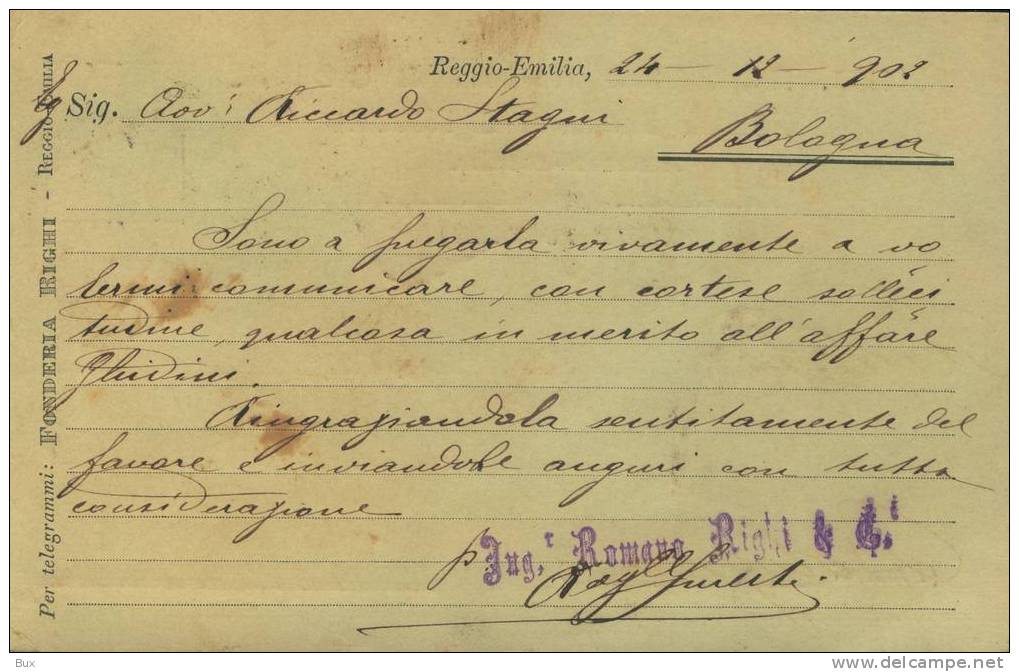 Reggio-Emilia, 24 - 12 - 902
Sig. Avv: Riccardo Stagni
Bologna
Sono a pregarla vivamente a vo
lermi comunicare, con cortese solleci
tudine, qualcosa in merito all'affare
Ghidini.
Ringraziandola sentitamente del
favore e inviandole auguri con tutta
considerazione
p Ing.r Romano Righi & C.i
Per telegrammi: FONDERIA RIGHI - REGGIO-EMILIA
Bux
http://www.delcampe.net